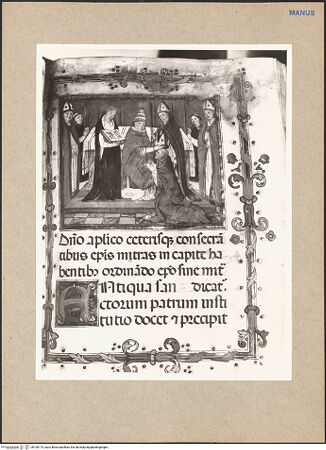 MANUS
Dño aplico ceterisq; consecrā
tibus ep̃is mitras in capite ha
bentib⁹ ordinãdo ep̃o sine mit̃
Antiqua san dicat̃
ctorum patrum insti
tutio docet ⁊ precipit